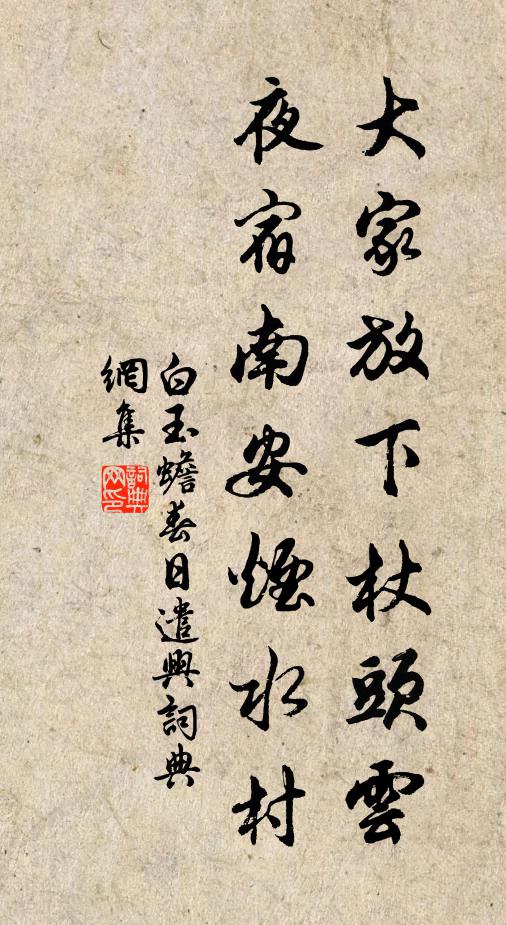 大家放下杖頭雲
夜宿南安煙水村
白玉蟾春日遣興詞典
網集
詞典網印